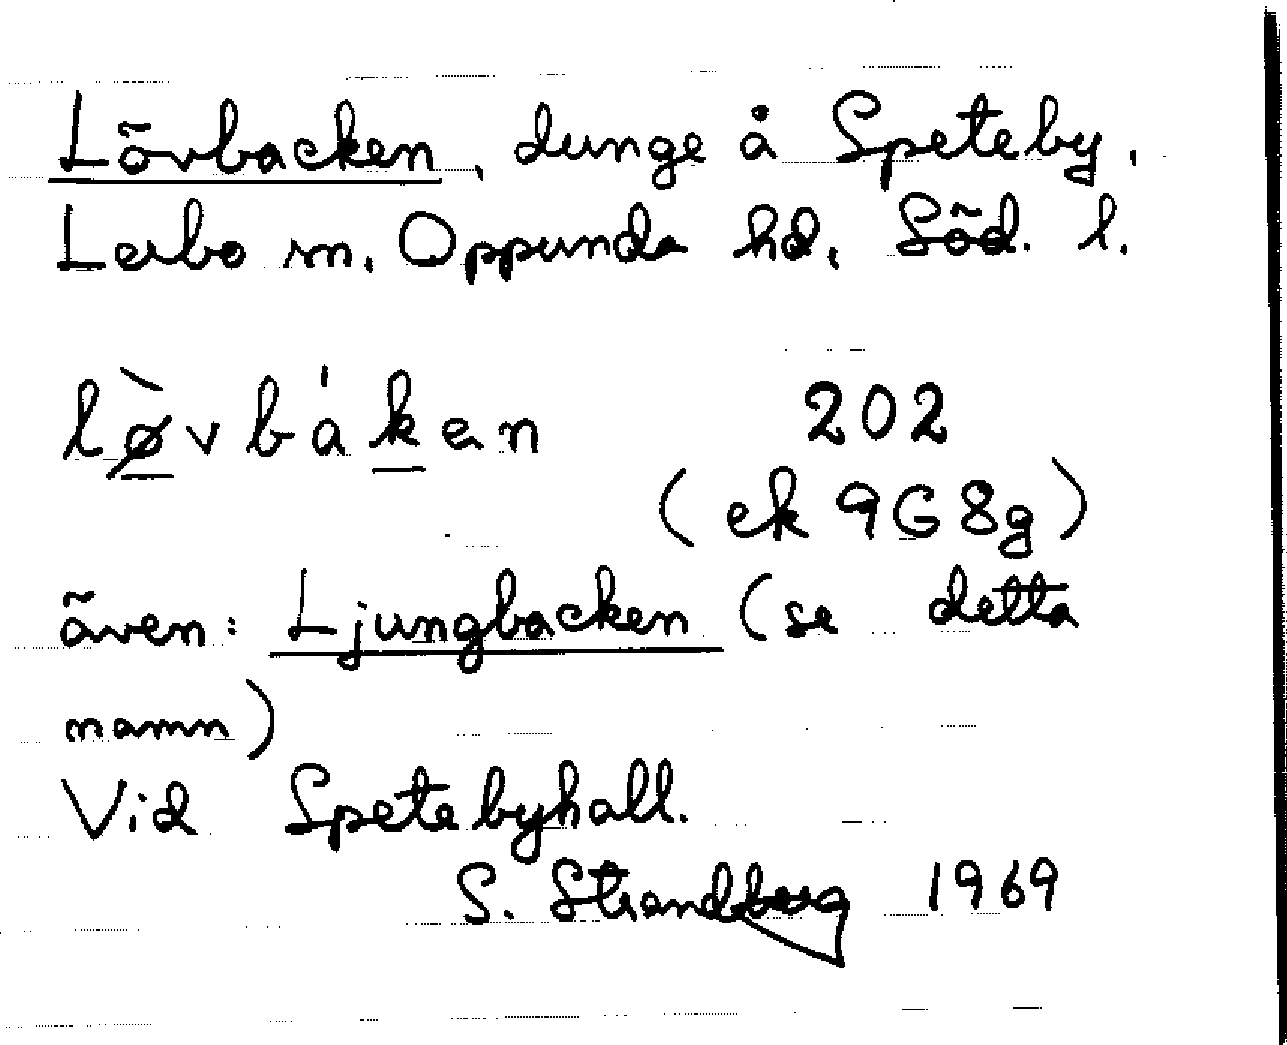 Lövbacken, dunge å Speteby,
Lerbo sn, Oppunda hd, Söd. l.
lø̀vbáken 202
(ek 9G8g)
även: Ljungbacken (se detta
namn)
Vid Spetebyhall.
S. Strandberg 1969